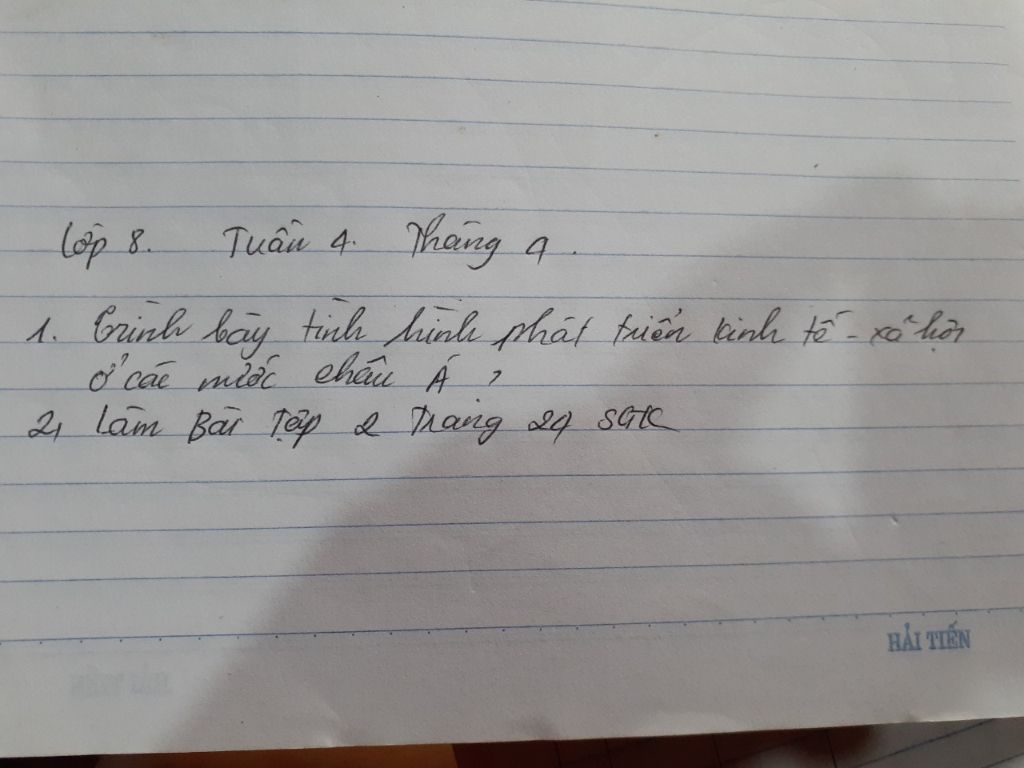 Lớp 8. Tuần 4. Tháng 9.
1. Trình bày tình hình phát triển kinh tế - xã hội
ở các nước châu Á ?
2, Làm Bài Tập 2 Trang 24 SGK
HẢI TIẾN